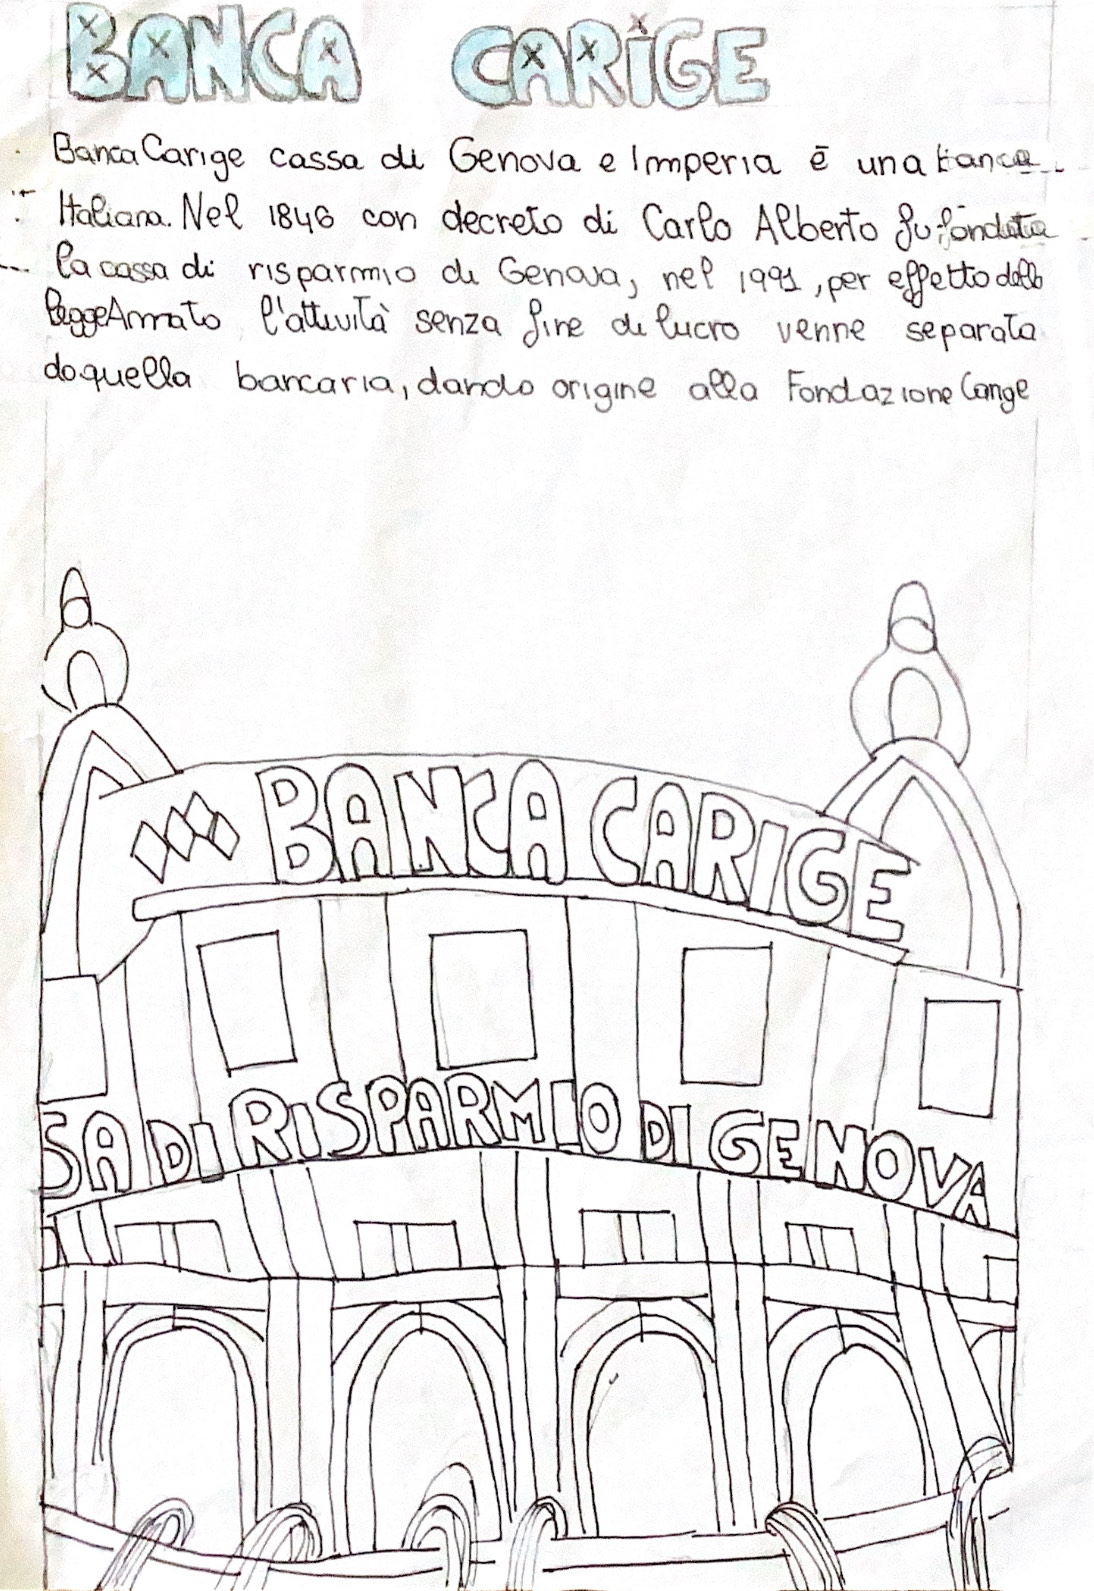 BANCA CARIGE
Banca Carige cassa di Genova e Imperia è una banca
Italiana. Nel 1846 con decreto di Carlo Alberto fu fondata
la cassa di risparmio di Genova, nel 1991, per effetto della
legge Amato l'attività senza fine di lucro venne separata
da quella bancaria, dando origine alla Fondazione Carige
BANCA CARIGE
SA DI RISPARMIO DI GENOVA